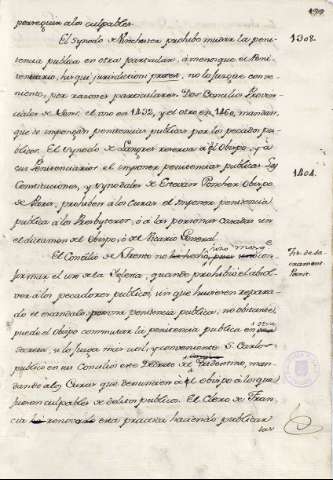 perseguir a los culpables.
El synodo de Winchester prohibe mudar la peni-
tencia publica en otra particular, à menos que el Peni-
tenciario, ò à quien la jurisdiccion no la juzgue conve-
niente, por razones particulares. Dos Concilios Provin-
ciales de Sens, el uno en 1432, y el otro en 1460, mandan,
que se impongan penitencias publicas por los pecados pu-
blicos. El synodo de Langres reserva à el obispo, y à
sus Penitenciarios el imponer penitencias publicas. Las
Constituciones, y synodales de Estevan Poncher Obispo
de Paris, prohiben à los Curas el imponer penitencia
publica à los Presbyteros, ò à las personas casadas sin
el dictamen del Obispo, ò del Vicario General.
El Concilio de Trento no hizo mas que con-
firmar el uso de la Yglesia, quando prohibiò el absol-
ver à los pecadores publicos, sin que huviesen repara-
do el escandalo por una penitencia publica, no obstante
puede el Obispo commutar la penitencia publica en otra
secreta, si la juzga mas util, y conveniente. S. Carlos
publicò en su Concilio este Decreto de el Tridentino, man-
dando à los Curas que denuncien à el obispo à los que
fueron culpables de delitos publicos. El Clero de Fran-
cia renovado esta practica haciendo publicar
las
1308.
1404.
Tri. de Sa-
crament.
Penit.